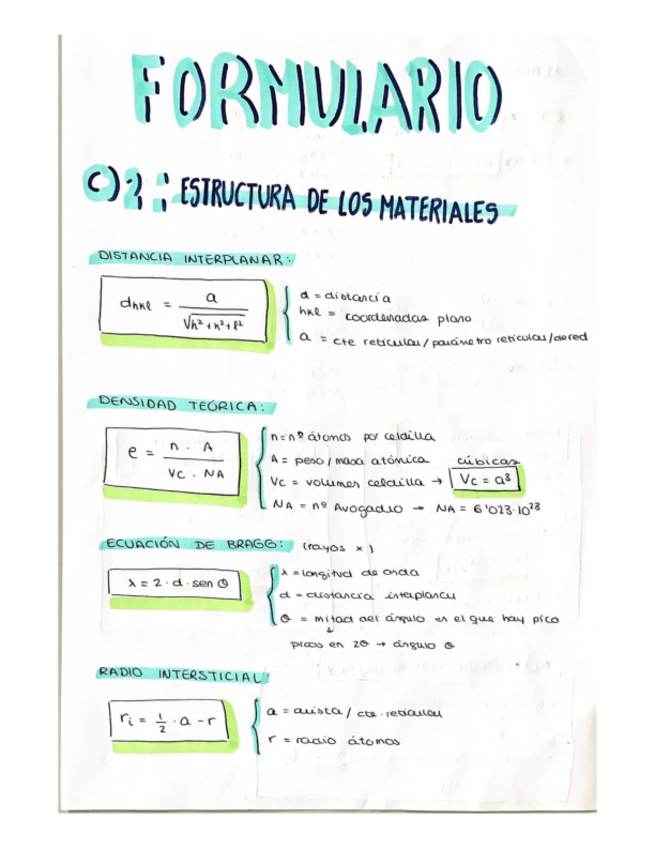 FORMULARIO
C) 2 : ESTRUCTURA DE LOS MATERIALES
DISTANCIA INTERPLANAR:
dhkl = a / √h² + k² + l²
d = distancia
hkl = coordenadas plano
a = cte reticular / parámetro reticular / de red
DENSIDAD TEÓRICA:
e = n · A / VC · NA
n = nº átomos por celdilla
A = peso / masa atómica
cúbicas
VC = volumen celdilla → VC = a³
NA = nº Avogadro → NA = 6'023·10²³
ECUACIÓN DE BRAGG: (rayos x)
λ = 2 · d · sen θ
λ = longitud de onda
d = distancia interplanar
θ = mitad del ángulo en el que hay pico
picos en 2θ → ángulo θ
RADIO INTERSTICIAL:
ri = 1/2 · a - r
a = arista / cte. reticular
r = radio átomos